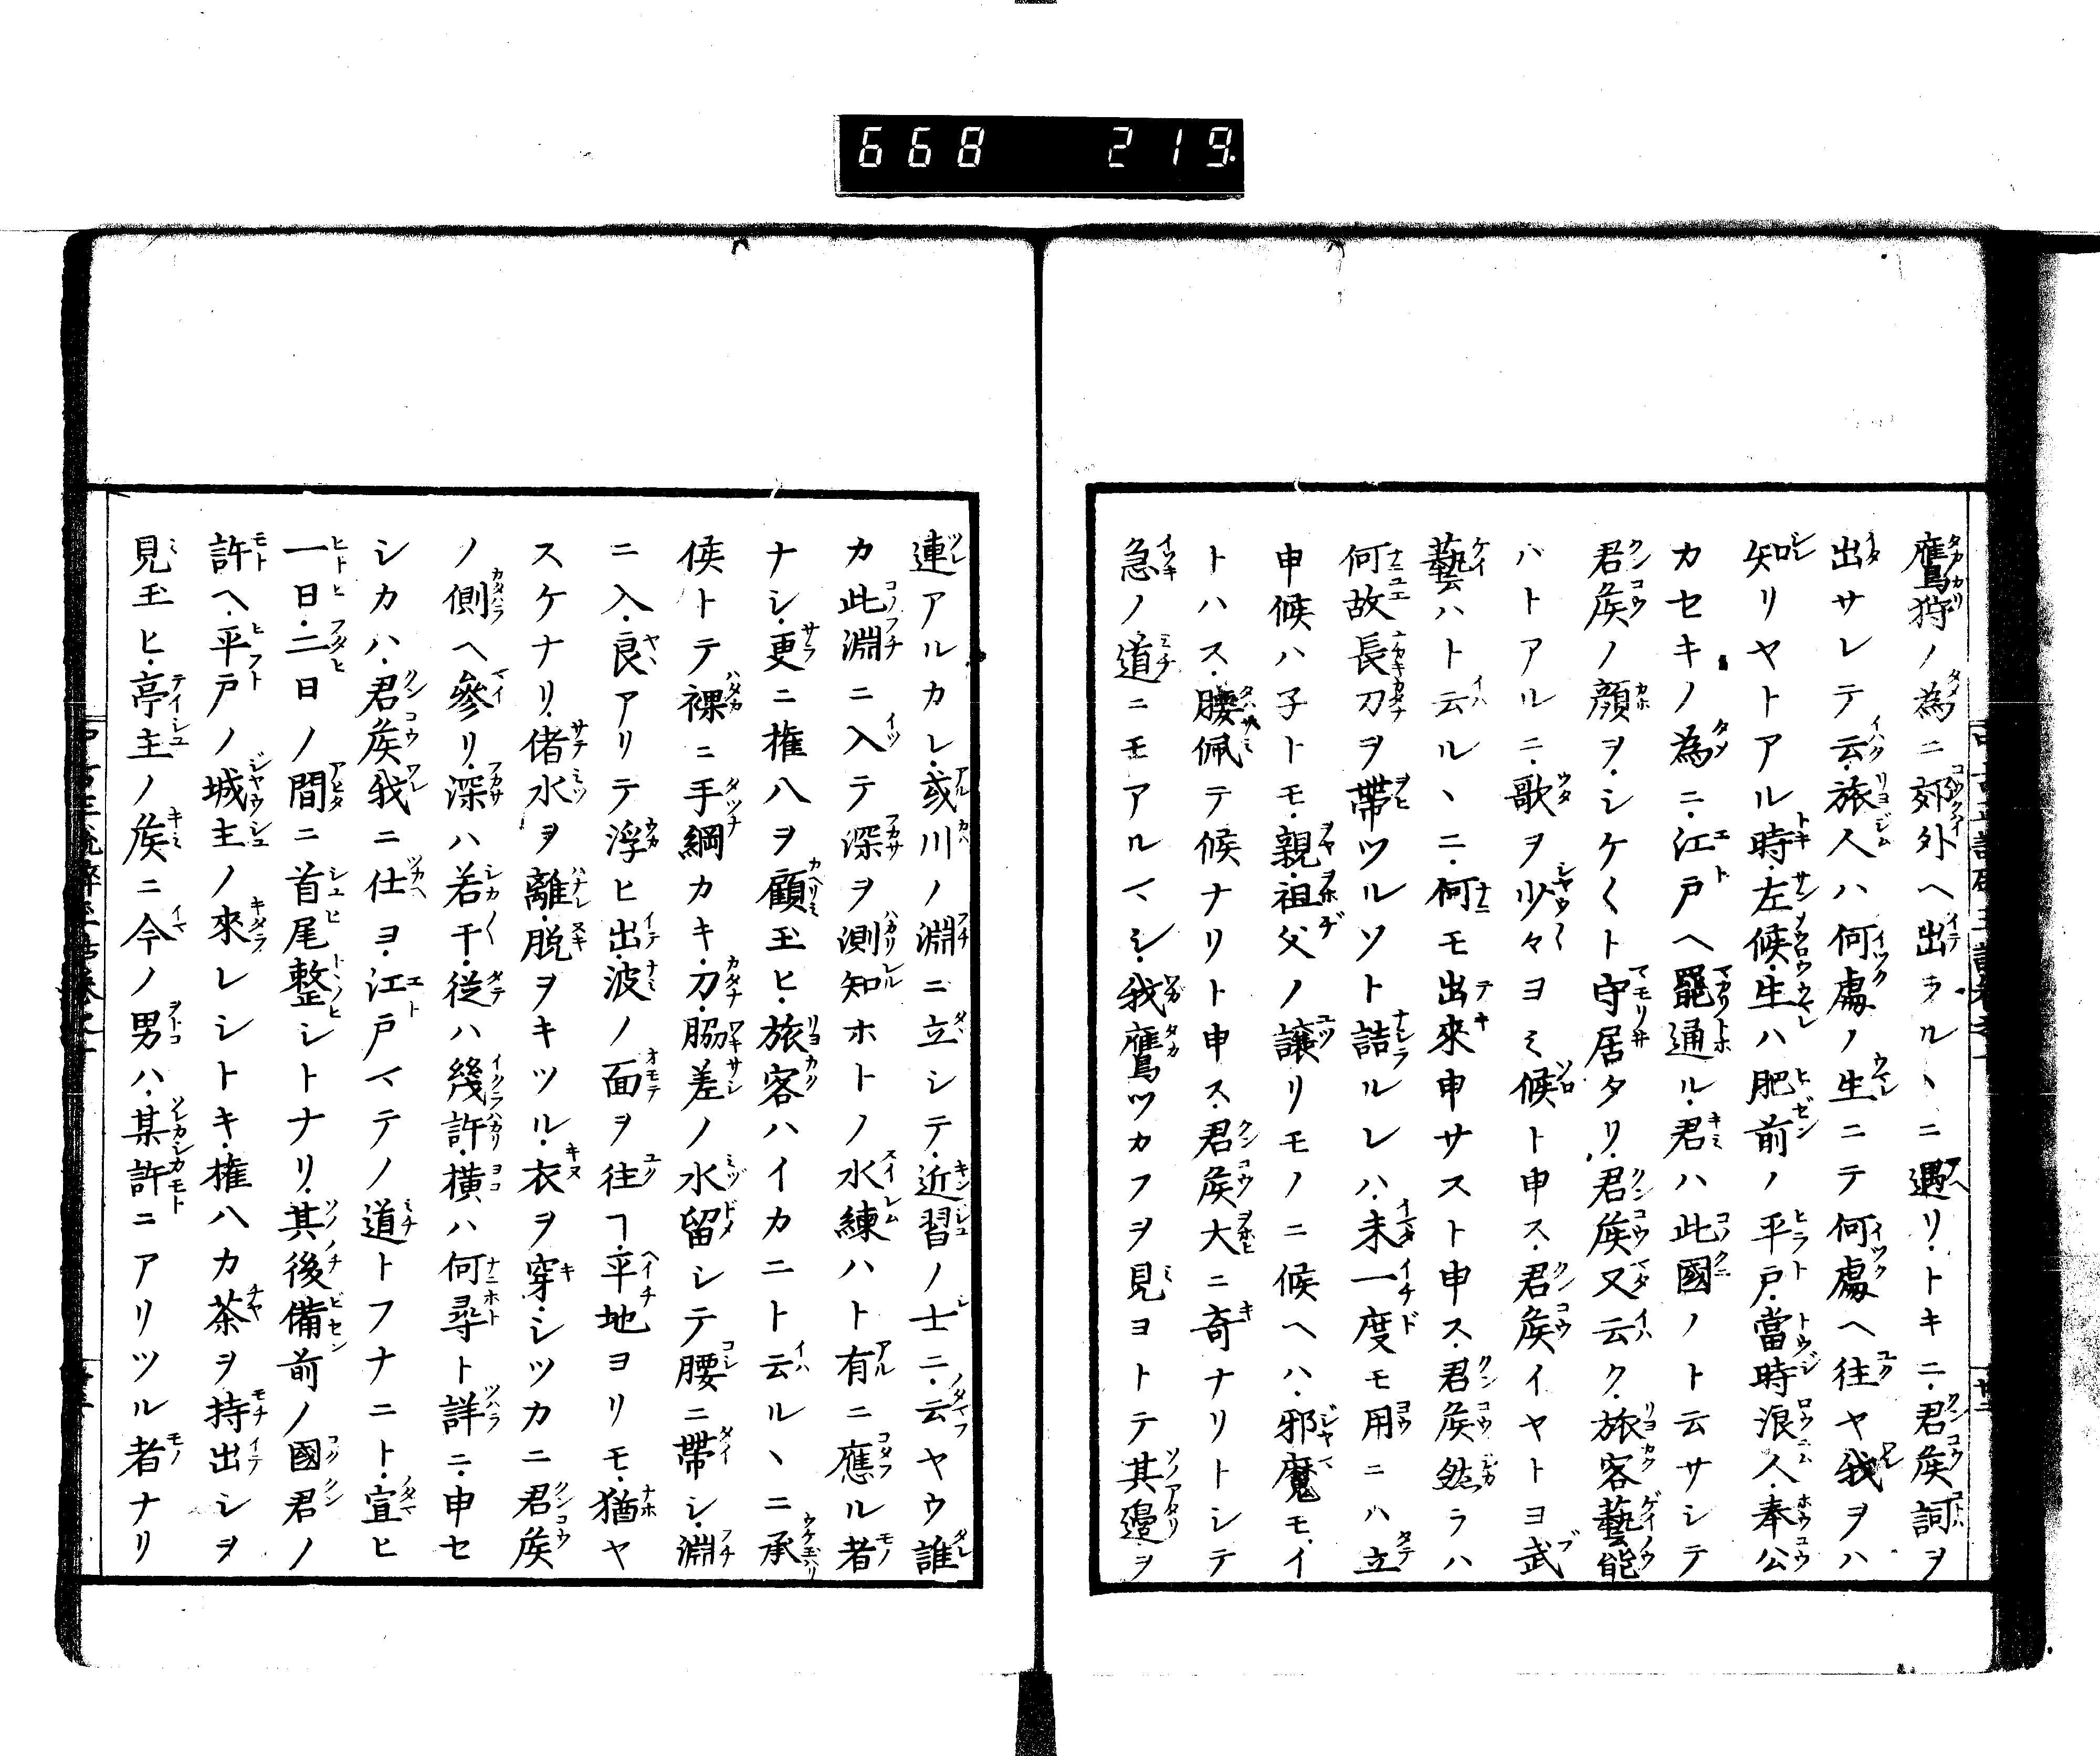 668 219.
鷹狩ノ為ニ郊外ヘ出ラルヽニ遇リ.トキニ.君矦詞ヲ
出サレテ云.旅人ハ何處ノ生ニテ何處ヘ往ヤ我ヲハ
知リヤトアル時.左候.生ハ肥前ノ平戸.當時浪人.奉公
カセキノ為ニ.江戸ヘ罷通ル.君ハ此國ノト云サシテ
君矦ノ顔ヲ.シケ〱ト守居タリ.君矦又云ク.旅客藝能
バトアルニ.歌ヲ少々ヨミ候ト申ス.君矦イヤトヨ武
藝ハト云ルヽニ.何モ出來申サスト申ス.君矦然ラハ
何故長刀ヲ帶ツルソト詰ルレハ.未一度モ用ニハ立
申候ハ子トモ.親.祖父ノ譲リモノニ候ヘハ.邪魔モ.イ
トハス.腰佩テ候ナリト申ス.君矦大ニ奇ナリトシテ
急ノ道ニモアルマシ.我鷹ツカフヲ見ヨトテ其邉ヲ
連アルカレ.或川ノ淵ニ立シテ.近習ノ士ニ.云ヤウ誰
カ此淵ニ入テ深ヲ測知ホトノ水練ハト有ニ應ル者
ナシ.更ニ権八ヲ顧玉ヒ.旅客ハイカニト云ルヽニ承
候トテ裸ニ手綱カキ.刀.脇差ノ水留シテ腰ニ帶シ.淵
ニ入.良アリテ浮ヒ出.波ノ面ヲ往ヿ.平地ヨリモ.猶ヤ
スケナリ.偖水ヲ離.脱ヲキツル.衣ヲ穿.シツカニ君矦
ノ側ヘ參リ.深ハ若干.従ハ幾許.横ハ何尋ト詳ニ.申セ
シカハ.君矦我ニ仕ヨ.江戸マテノ道トフナニト.宣ヒ
一日.二日ノ間ニ首尾整シトナリ.其後備前ノ國君ノ
許ヘ.平戸ノ城主ノ來レシトキ.権八カ茶ヲ持出シヲ
見玉ヒ.亭主ノ矦ニ今ノ男ハ.某許ニアリツル者ナリ